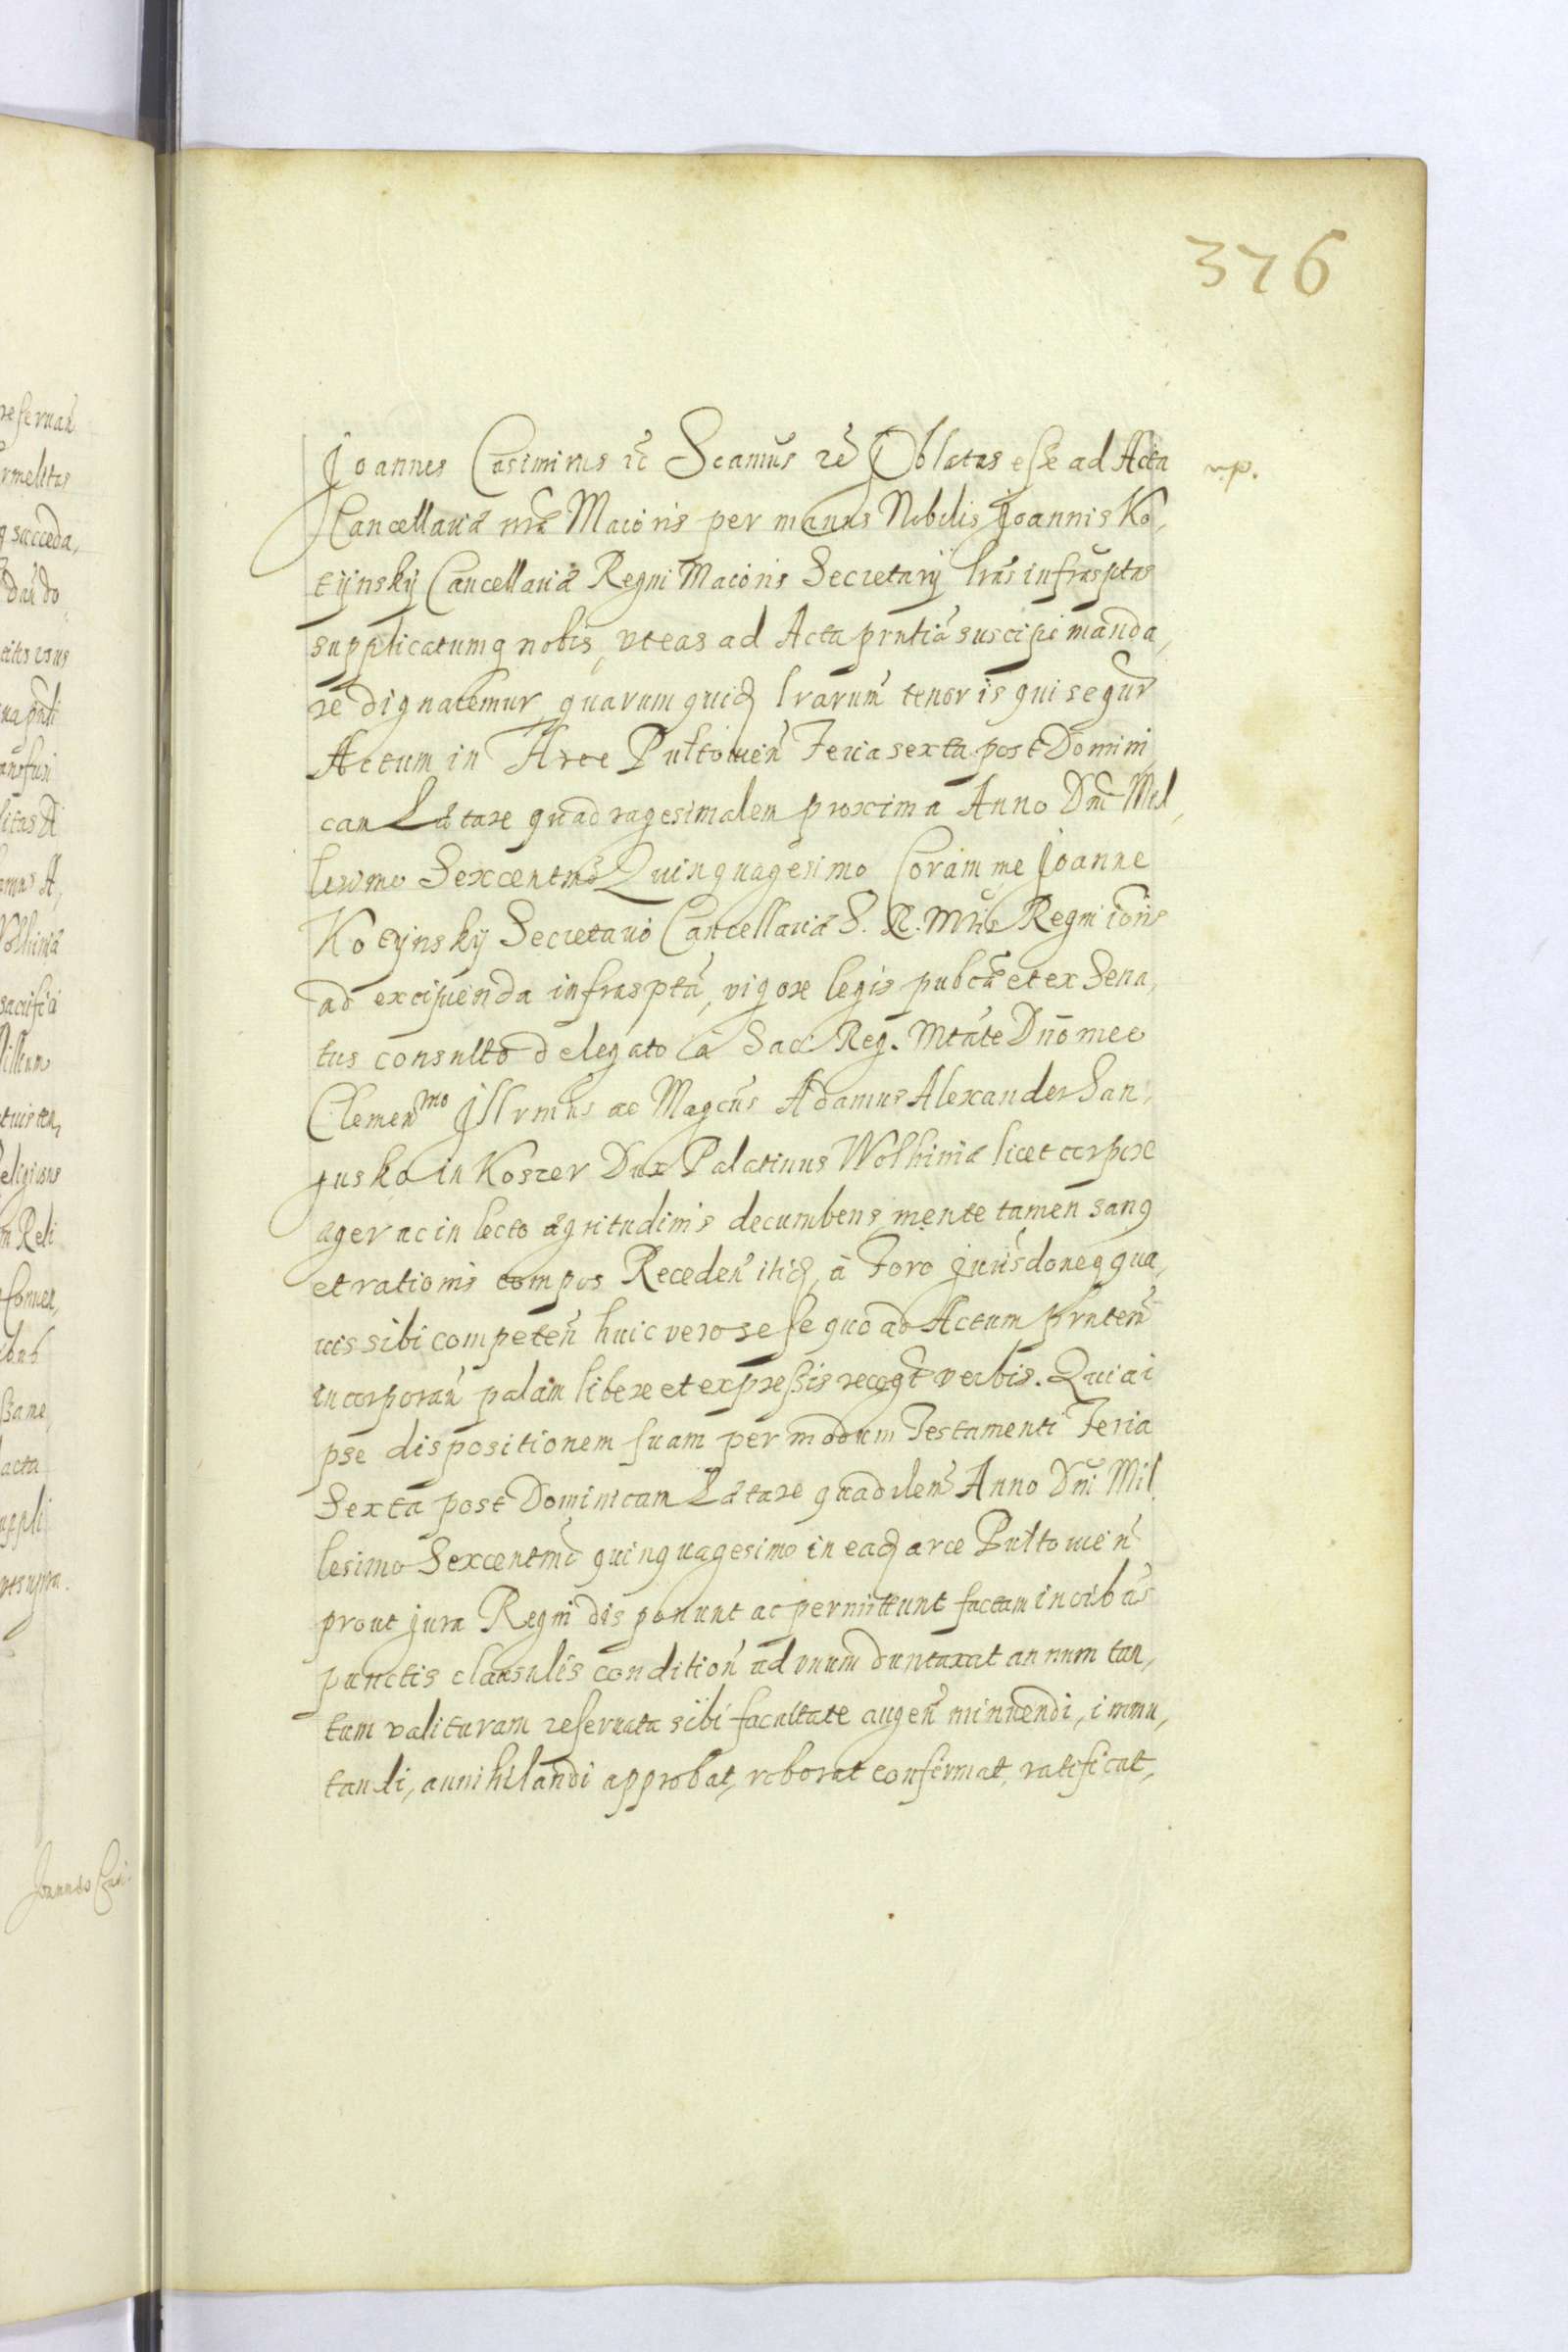 376
Joannes Casimirus etc Scamus etc Oblatas esse ad Acta
n.p.
Cancellariæ nræ Maioris per manus Nobilis Joannis Ko,
tyjnskij Cancellariæ Regni Maioris Secretarij lras infrasptas
supplicatumq nobis, vt eas ad Acta prntia suscipi manda,
re dignaremur, quarum quid lrarum tenor is qui sequr
Actum in Arce Pultowien Feria sexta post Domini,
can Lætare quadragesimalem proxima Anno Dni Mil,
lesimo Sexcentmo Quinquagesimo Coram me Joanne
Kotyjnskij Secretario Cancellariæ S. R. Mtis Regni ioris
ad excipienda infrasptа, vigore legis pubcæ et ex Sena,
tus consulto delegato a Sac Reg. Mtate Dno meo
Clemenmo Jllrmus ac Magcus Adamus Alexander San,
gusko in Koszer Dux Palatinus Wolhiniæ licet corpore
æger ac in lecto ægritudinis decumbens mente tamen sanq
et rationis compos Receden itid, à Foro Jurisdoneq qua,
uis sibi competen huic vero sese quo ad Actum prntem
incorporan palam libere et expressis recogt verbis. Quia i
pse dispositionem suam per modum Testamenti Feria
Sexta post Dominicam Lætare quadrlem Anno Dni Mil
lesimo Sexcentmo quinquagesimo in ead arce Pultowien
prout jura Regni disponunt ac permittunt factam in oibus
punctis clausulis condition ad vnum duntaxat annum tan,
tum valituram reseruata sibi facultate augen minuendi, immu,
tandi, annihilandi approbat, roborat confirmat, ratificat,